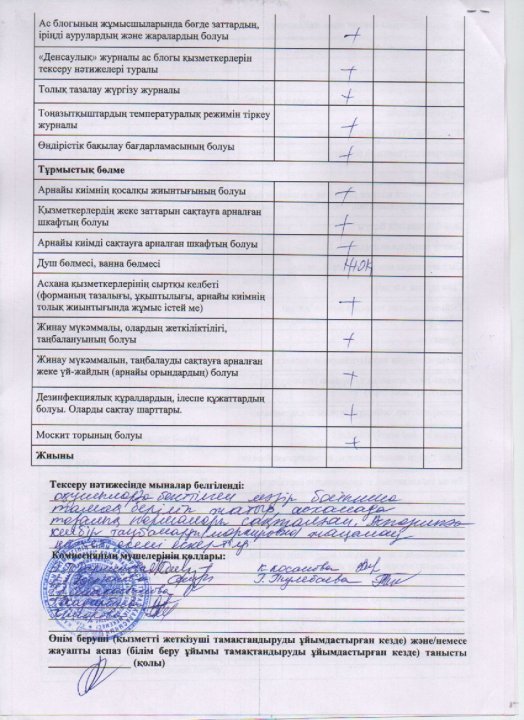 Ас блогының жұмысшыларында бөгде заттардың,
іріңді аурулардың және жаралардың болуы +
«Денсаулық» журналы ас блогы қызметкерлерін
тексеру нәтижелері туралы +
Толық тазалау жүргізу журналы +
Тоңазытқыштардың температуралық режимін тіркеу
журналы +
Өндірістік бақылау бағдарламасының болуы +
Тұрмыстық бөлме
Арнайы киімнің қосалқы жиынтығының болуы +
Қызметкерлердің жеке заттарын сақтауға арналған
шкафтың болуы +
Арнайы киімді сақтауға арналған шкафтың болуы +
Душ бөлмесі, ванна бөлмесі жок
Асхана қызметкерлерінің сыртқы келбеті
(форманың тазалығы, ұқыптылығы, арнайы киімнің
толық жиынтығында жұмыс істей ме) +
Жинау мүкәммалы, олардың жеткіліктілігі,
таңбалануының болуы +
Жинау мүкәммалын, таңбалауды сақтауға арналған
жеке үй-жайдың (арнайы орындардың) болуы +
Дезинфекциялық құралдардың, ілеспе құжаттардың
болуы. Оларды сақтау шарттары. +
Москит торының болуы +
Жиыны
Тексеру нәтижесінде мыналар белгіленді:
бекітілген мәзір бойынша
тамақ беріліп жатыр асханада
сақталған
кейбір
Комиссияның мүшелерінің қолдары:
Г. Тулебаева
Өнім беруші (қызметті жеткізуші тамақтандыруды ұйымдастырған кезде) және/немесе
жауапты аспаз (білім беру ұйымы тамақтандыруды ұйымдастырған кезде) танысты
(қолы)